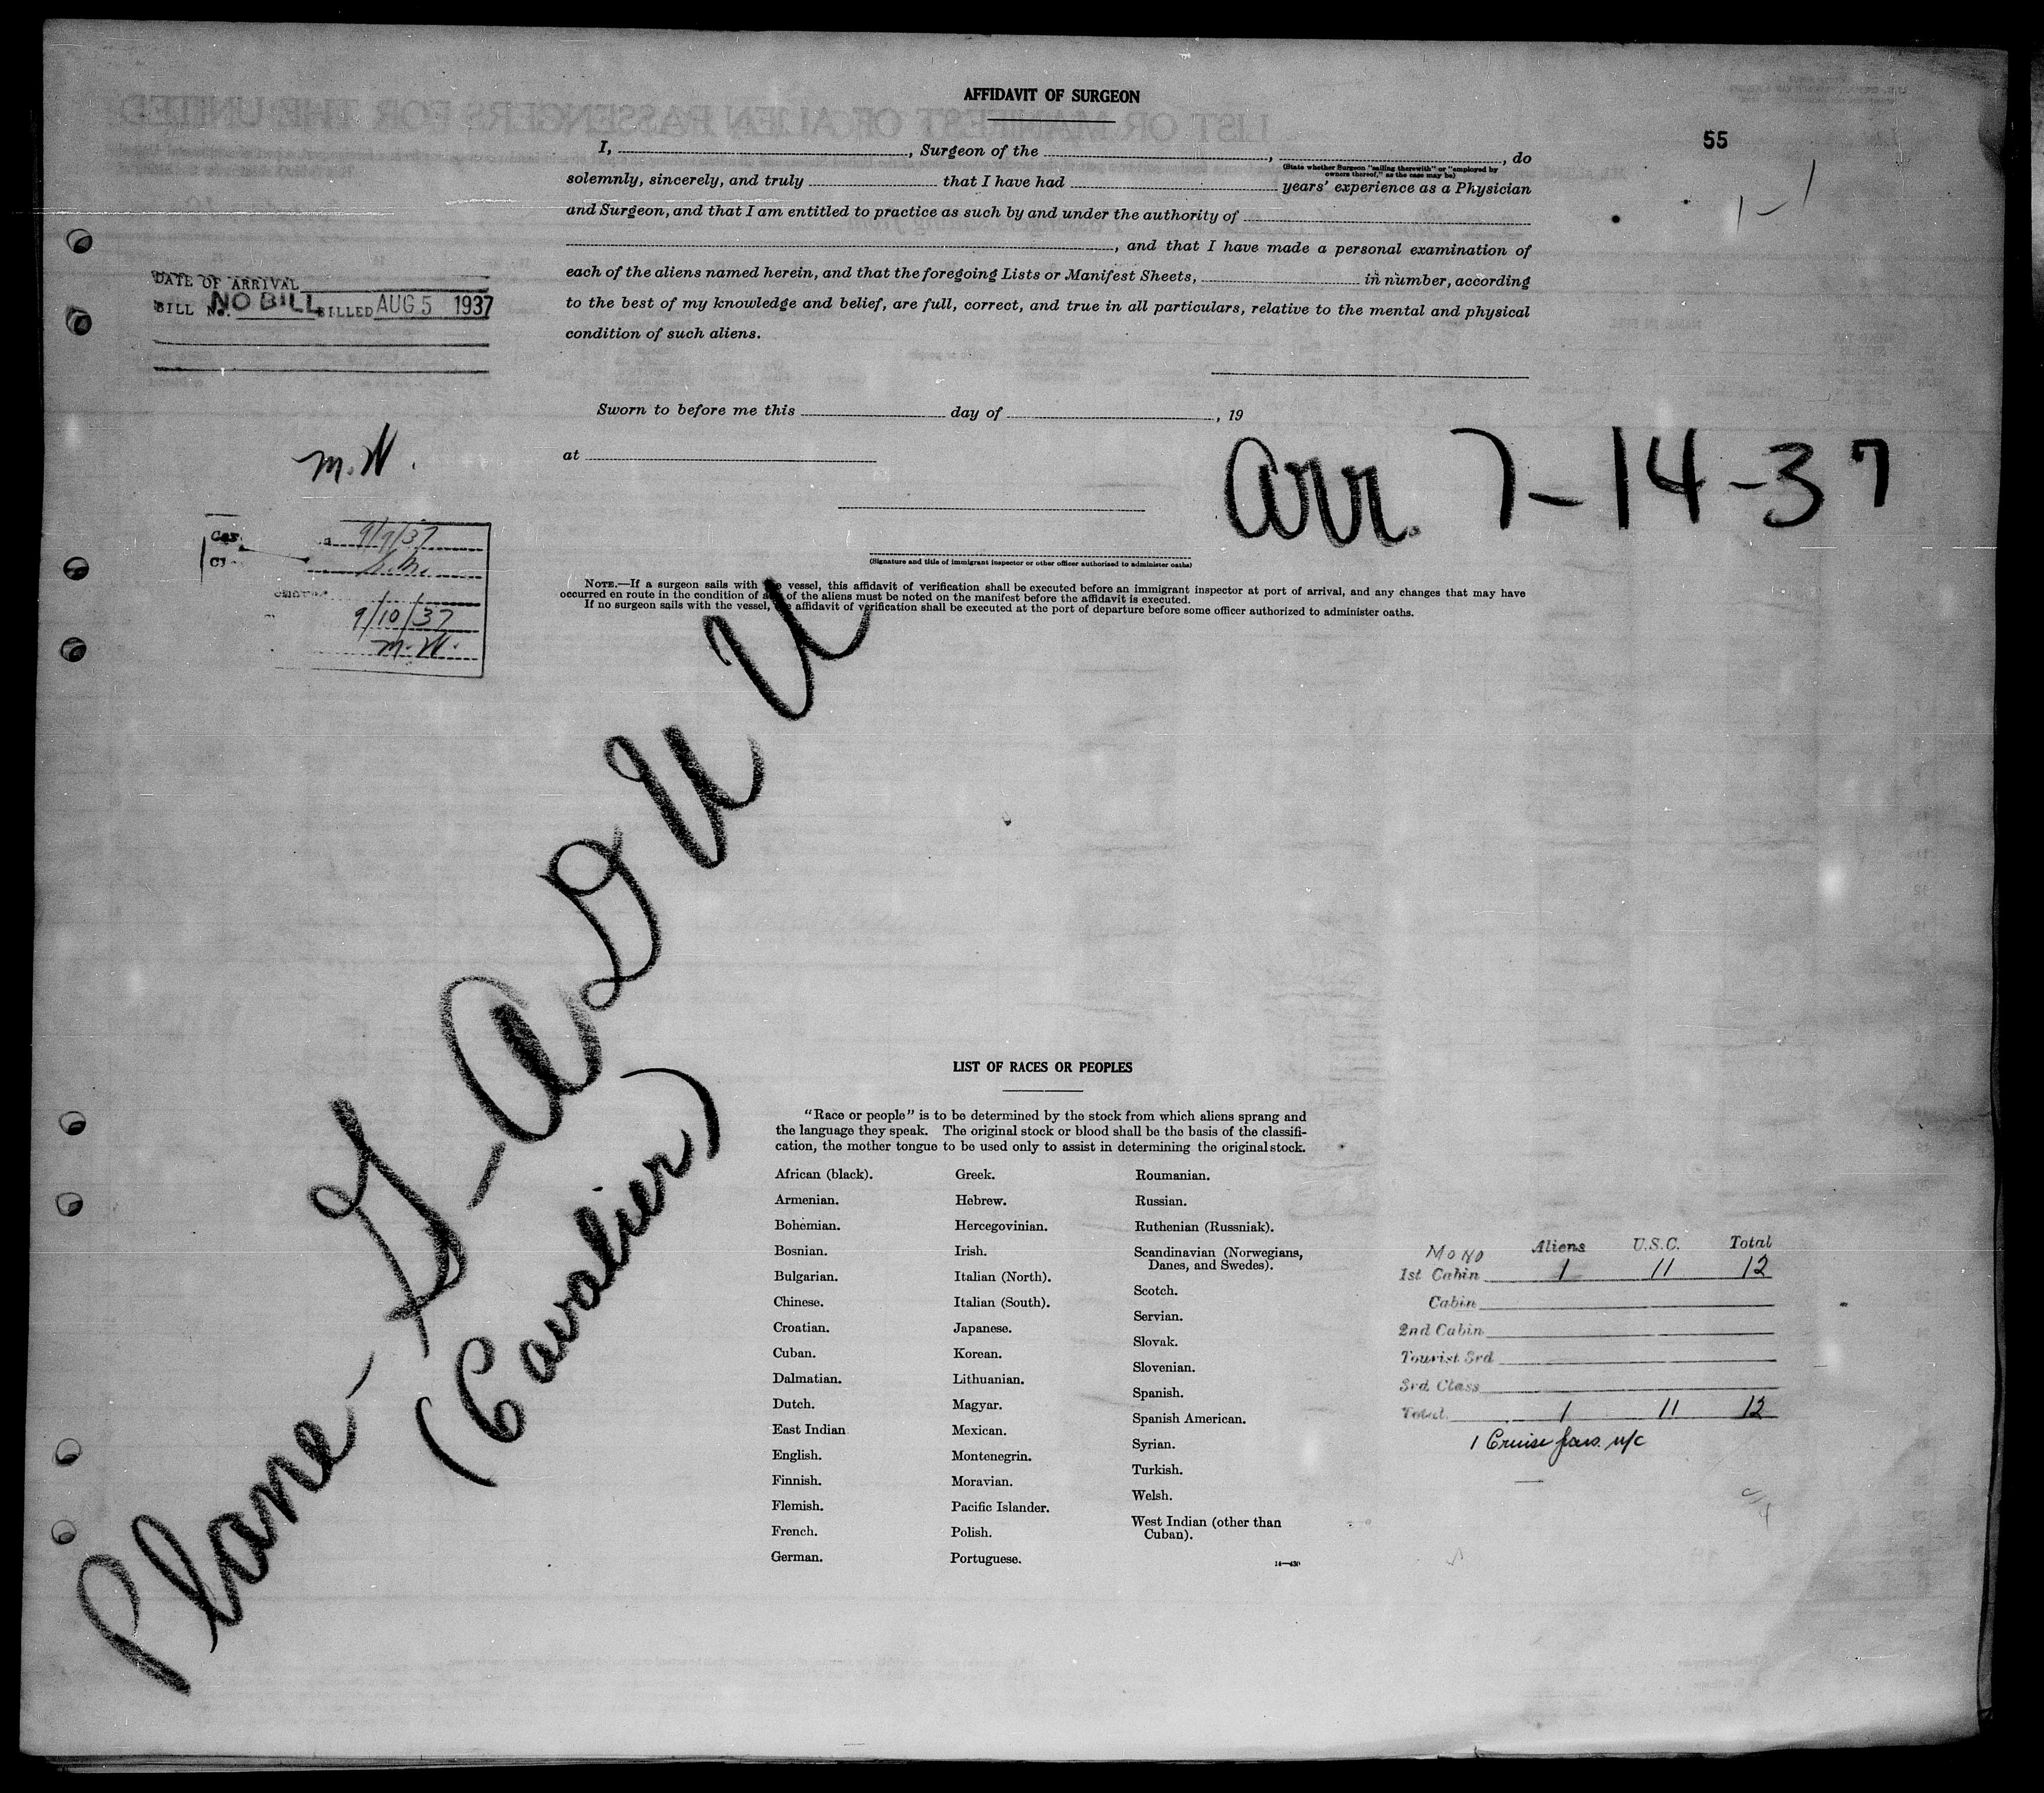 AFFIDAVIT OF SURGEON
55
I, , Surgeon of the , , do
(State whether Surgeon "sailing therewith" or "employed by
owners thereof," as the case may be)
solemnly, sincerely, and truly that I have had years' experience as a Physician
and Surgeon, and that I am entitled to practice as such by and under the authority of
, and that I have made a personal examination of
each of the aliens named herein, and that the foregoing Lists or Manifest Sheets, in number, according
to the best of my knowledge and belief, are full, correct, and true in all particulars, relative to the mental and physical
condition of such aliens.
DATE OF ARRIVAL
BILL No. NO BILL BILLED AUG 5 1937
Sworn to before me this day of , 19
at
M.W.
Arr. 7-14-37
9/9/37
9/10/37
M.W.
(Signature and title of immigrant inspector or other officer authorized to administer oaths)
NOTE.—If a surgeon sails with the vessel, this affidavit of verification shall be executed before an immigrant inspector at port of arrival, and any changes that may have
occurred en route in the condition of any of the aliens must be noted on the manifest before the affidavit is executed.
If no surgeon sails with the vessel, the affidavit of verification shall be executed at the port of departure before some officer authorized to administer oaths.
Plane - G-ADUU
(Cavalier)
LIST OF RACES OR PEOPLES
"Race or people" is to be determined by the stock from which aliens sprang and
the language they speak. The original stock or blood shall be the basis of the classifi-
cation, the mother tongue to be used only to assist in determining the original stock.
African (black).
Armenian.
Bohemian.
Bosnian.
Bulgarian.
Chinese.
Croatian.
Cuban.
Dalmatian.
Dutch.
East Indian
English.
Finnish.
Flemish.
French.
German.
Greek.
Hebrew.
Hercegovinian.
Irish.
Italian (North).
Italian (South).
Japanese.
Korean.
Lithuanian.
Magyar.
Mexican.
Montenegrin.
Moravian.
Pacific Islander.
Polish.
Portuguese.
Roumanian.
Russian.
Ruthenian (Russniak).
Scandinavian (Norwegians,
Danes, and Swedes).
Scotch.
Servian.
Slovak.
Slovenian.
Spanish.
Spanish American.
Syrian.
Turkish.
Welsh.
West Indian (other than
Cuban).
Aliens U.S.C. Total
1st Cabin 1 11 12
Cabin
2nd Cabin
Tourist 3rd
3rd Class
Total 1 11 12
1 Cruise pass.